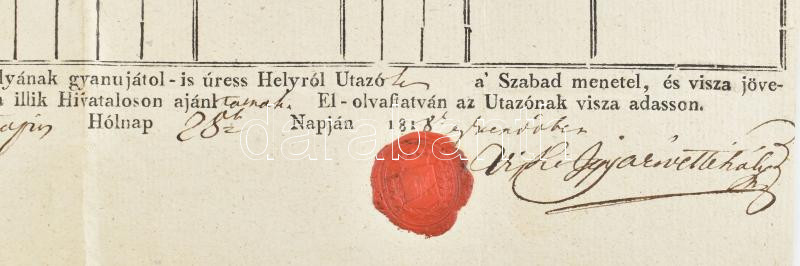 lyának gyanujától-is üress Helyről Utazó a' Szabad menetel, és visza jöve-
a illik Hivataloson ajánl El-olvastatván az Utazónak visza adasson.
Hólnap 28 Napján 1818 esztendőben
darabanth